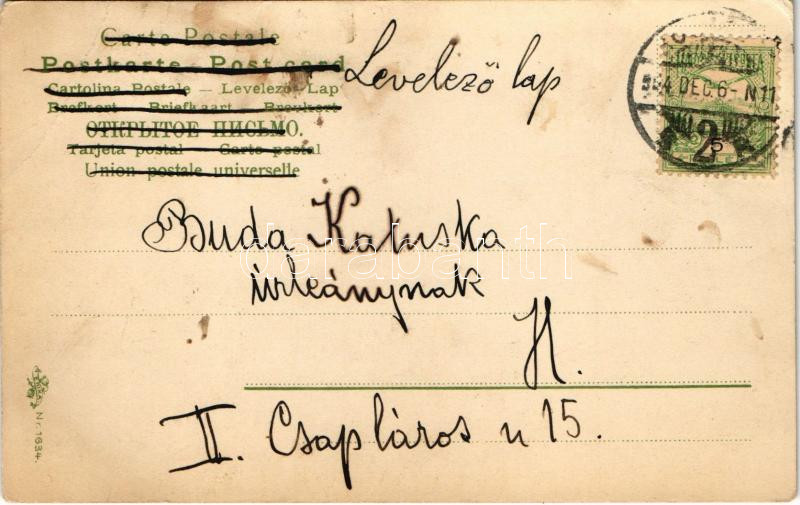 Carte Postale
Postkarte – Post card
Cartolina Postale – Levelező-Lap
Brefkort – Briefkaart – Brevkort
ОТКРЫТОЕ ПИСЬМО.
Tarjeta postal – Carte postal
Union postale universelle
Levelező lap
4 DEC. 6 - N 11
2
5
Buda Katuska
úrleánynak
H.
II. Csapláros u 15.
Nr. 1634.
darabanth